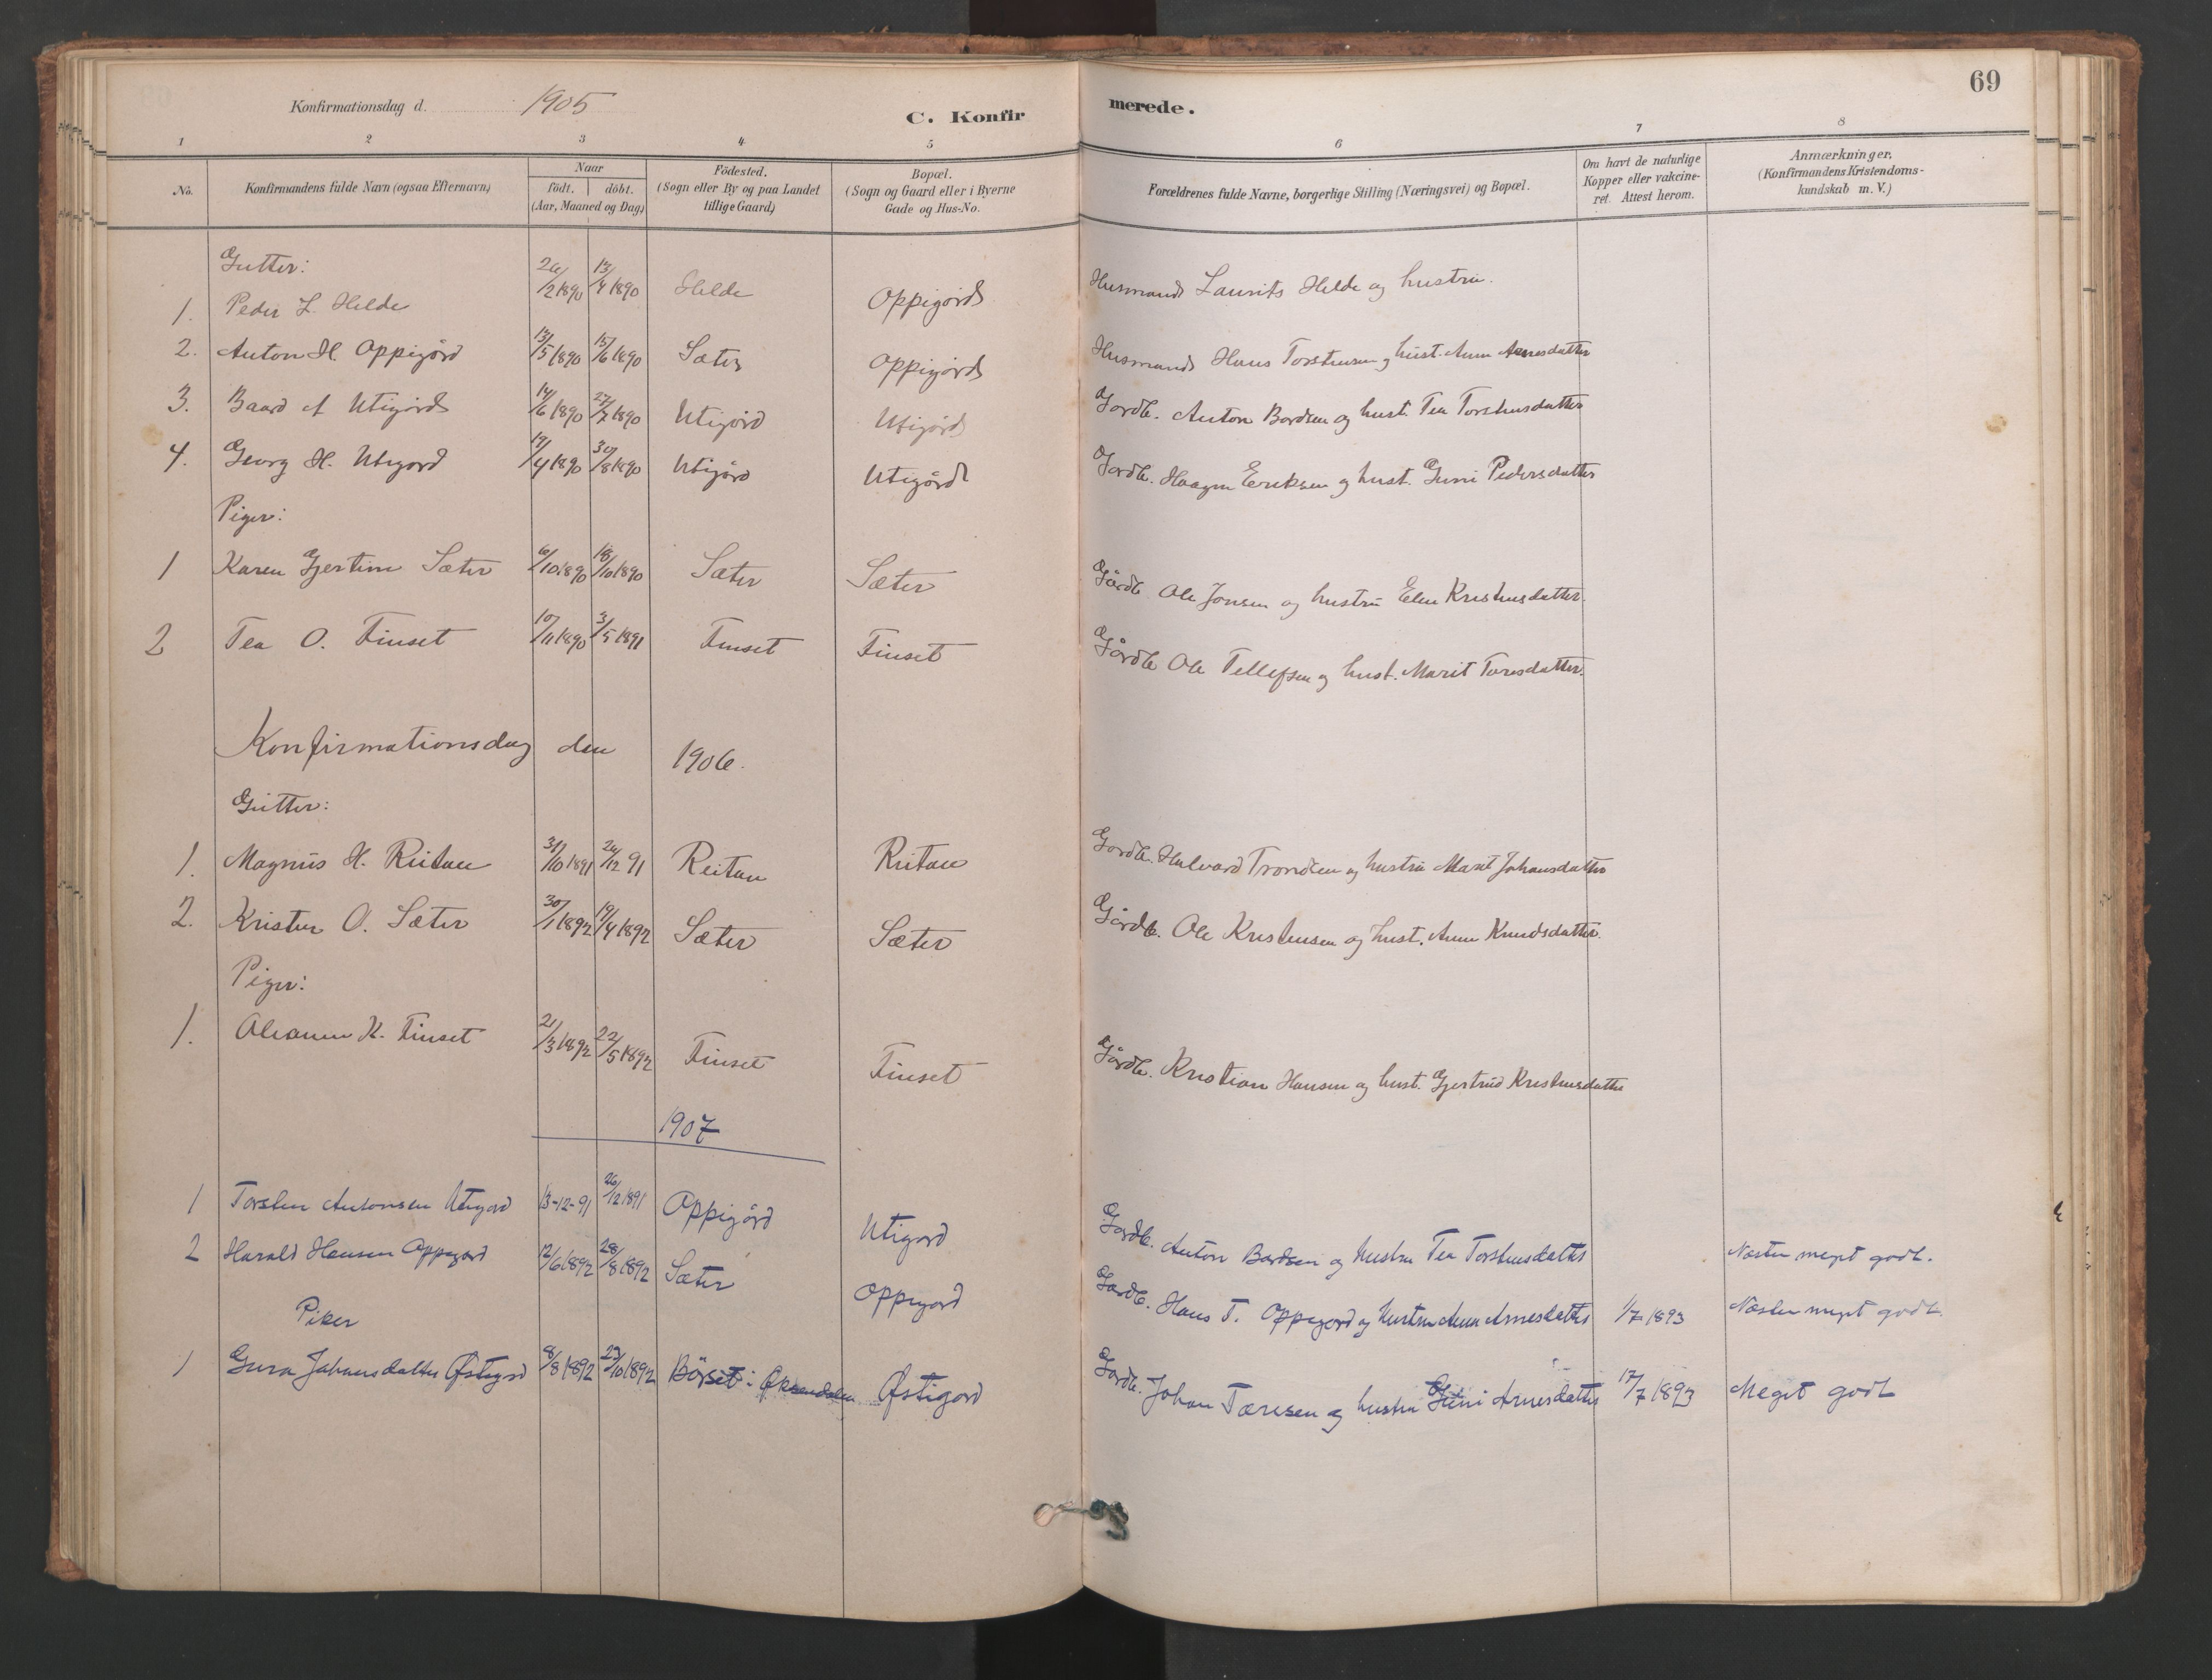 69
Konfirmationsdag d. 1905
C. Konfirmerede.
1 2 3 4 5 6 7 8
No.
Konfirmandens fulde Navn (ogsaa Efternavn)
Naar
födt. döbt.
(Aar, Maaned og Dag)
Födested.
(Sogn eller By og paa Landet
tillige Gaard)
Bopæl.
(Sogn og Gaard eller i Byerne
Gade og Hus-No.
Forældrenes fulde Navne, borgerlige Stilling (Næringsvei) og Bopæl.
Om havt de naturlige
Kopper eller vakcine-
ret. Attest herom.
Anmærkninger.
(Konfirmandens Kristendoms-
kundskab m. V.)
Gutter:
1. Peder L. Helde /2 1890 13/4 1890 Helde Oppigård Husmand Laurits Helde og hustru.
2. Anton H. Oppigård 13/5 1890 15/6 1890 Sæter Oppigård Husmand Hans Torstensen og hust. Ane Arnesdatter
3. Baard A Utigård 14/6 1890 27/7 1890 Utigård Utigård Gardb. Anton Bardsen og hust. Tea Torstensdatter
4. Georg H. Utigard 19/4 1890 30/8 1890 Utigård Utigård Gardb. Haagen Eriksen og hust. Guni Pedersdatter
Piger:
1 Karen Gjertine Sæter 6/10 1890 18/10 1890 Sæter Sæter Gårdb. Ole Jonsen og hustru Elen Kristensdatter.
2 Tea O. Finset 10/11 1890 3/5 1891 Finset Finset Gårdb. Ole Tellefsen og hust. Marit Toresdatter.
Konfirmationsdag den 1906.
Gutter:
1. Magnus H. Reitan 31/10 1891 26/12 91 Reitan Reitan Gardb. Halvard Trondsen og hustru Marit Johansdatter
2. Kristen O. Sæter 30/1 1892 19/4 1892 Sæter Sæter Gårdb. Ole Kristensen og hust. Ane Knudsdatter.
Piger:
1. Oleanne K. Finset 21/3 1892 22/5 1892 Finset Finset Gårdb. Kristian Hansen og hust. Gjertrud Kristensdatter
1907
1 Torsten Antonsen Utigard 13-12-91 26/12 1891 Oppigård Utigard Gardb. Anton Bardsen og hustru Tea Torstensdatter Næsten meget godt.
2 Harald Hansen Oppigard 12/6 1892 28/8 1892 Sæter Oppigard Gardb. Hans T. Oppigard og hustru Anne Arnesdatter 1/7 1893 Næsten meget godt.
Piker
1 Gura Johansdatter Østigard 8/8 1892 23/10 1892 Börset i Øksendalen Østigard Gårdb. Johan Taresen og hustru Guni Arnesdatter 17/7 1893 Meget godt